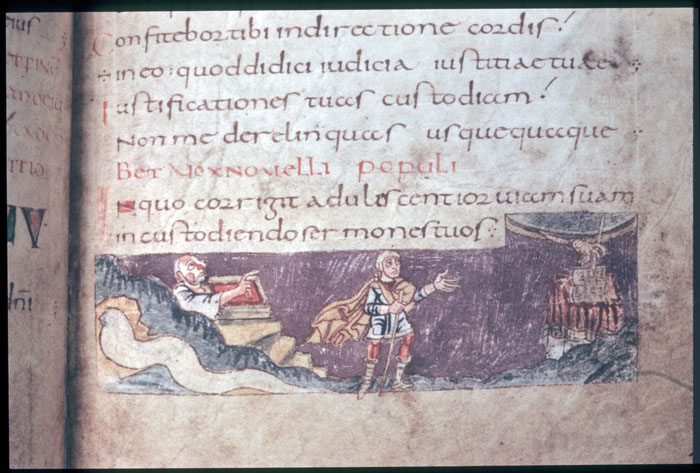 Confitebor tibi in directione cordis
in eo quod didici iudicia iustitiae tuae
Iustificationes tuas custodiam
Non me derelinquas usquequaque
Bet vox novelli populi
In quo corrigit adulescentior uiam suam
in custodiendo sermones tuos
dñi